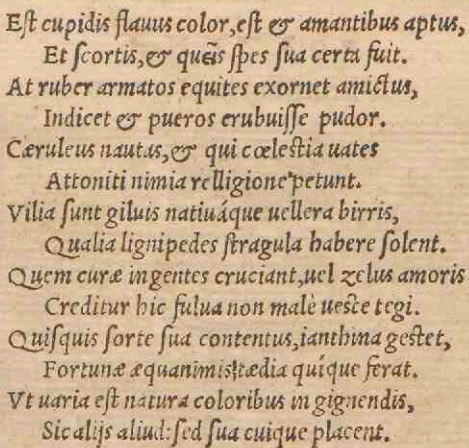 Eſt cupidis flauus color, eſt & amantibus aptus,
Et ſcortis, & queîs ſpes ſua certa fuit.
At ruber armatos equites exornet amictus,
Indicet & pueros erubuiſſe pudor.
Cæruleus nautas, & qui cœleſtia uates
Attoniti nimia relligione petunt.
Vilia ſunt giluis natiuáque uellera birris,
Qualia lignipedes ſtragula habere ſolent.
Quem curæ ingentes cruciant, uel zelus amoris
Creditur hic fulua non malè ueſte tegi.
Quiſquis ſorte ſua contentus, ianthina geſtet,
Fortunæ æquanimis tædia quíque ferat.
Vt uaria eſt natura coloribus in gignendis,
Sic alijs aliud: ſed ſua cuique placent.